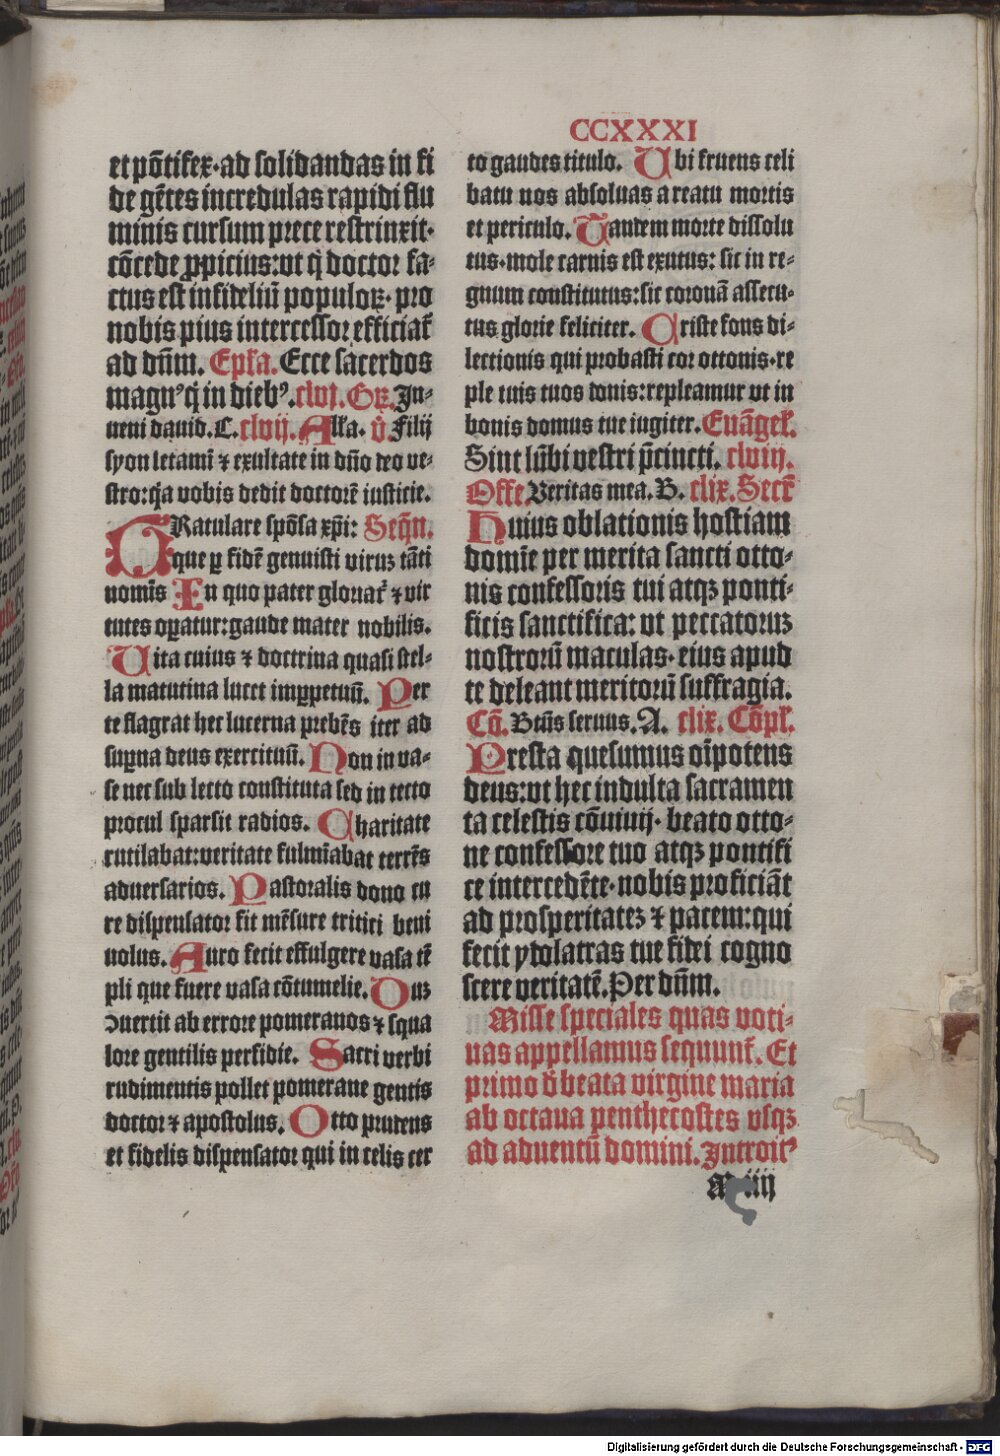 CCXXXI
et põtifex·ad solidandas in fi
de gẽtes incredulas rapidi flu
minis cursum prece restrinxit·
cõcede ꝓpicius:vt q̇ doctor fa-
ctus est infideliũ populoꝝ· pro
nobis pius intercessor efficiat᷑
ad dñm. Epł'a. Ecce sacerdos
magnꝰ q̇ in diebꝰ. clvj. Gꝝ. In-
ueni dauid. C. clvij. Alł'a. v̉ Filij
syon letami᷑ ⁊ exultate in dño deo ve-
stro: q̇a vobis dedit doctorẽ iusticie.
GRatulare spõsa xp̃i: Seq̃n.
que ꝑ fidẽ genuisti viruꝫ tãti
nomĩs In quo pater gloriat᷑ ⁊ vir
tutes oꝑatur:gaude mater nobilis.
Uita cuius ⁊ doctrina quasi stel-
la matutina lucet imꝑpetuũ. Per
te flagrat hec lucerna prebẽs iter ad
suꝑna deus exercituũ. Non in va-
se nec sub lecto constituta sed in tecto
procul sparsit radios. Charitate
rutilabat:veritate fulmĩabat terrẽs
aduersarios. Pastoralis dono cu
re dispensator fit mẽsure tritici beni
uolus. Auro fecit effulgere vasa tẽ
pli que fuere vasa cõtumelie. Quꝫ
ꝯuertit ab errore pomeranos ⁊ squa
lore gentilis perfidie. Sacri verbi
rudimentis pollet pomerane gentis
doctor ⁊ apostolus. Otto prudens
et fidelis dispensator qui in celis cer
to gaudes titulo. Ubi fruens celi
batu nos absoluas a reatu mortis
et periculo. Tandem morte dissolu
tus·mole carnis est exutus: sic in re-
gnum constitutus:sic coronã assecu-
tus glorie feliciter. Criste fons di-
lectionis qui probasti cor ottonis·re
ple tuis tuos donis:repleamur vt in
bonis domus tue iugiter. Euãgeł.
Sint lũbi vestri p̃cincti. clviij.
Offe Veritas mea. B. clix. Secr̃
Huius oblationis hostiam
domĩe per merita sancti otto-
nis confessoris tui atqꝫ ponti-
ficis sanctifica: vt peccatoruꝫ
nostrorũ maculas· eius apud
te deleant meritorũ suffragia.
Cõ. Btũs seruus. A. clix. Cõpł.
Presta quesumus oĩpotens
deus:vt hec indulta sacramen
ta celestis cõuiuij· beato otto-
ne confessore tuo atqꝫ pontifi
ce intercedẽte·nobis proficiãt
ad prosperitateꝫ ⁊ pacem:qui
fecit ydolatras tue fidei cogno
scere veritatẽ. Per dñm.
Misse speciales quas voti-
uas appellamus sequunt᷑. Et
primo d̓ beata virgine maria
ab octaua penthecostes vsqꝫ
ad aduentũ domini. Introitꝰ
Digitalisierung gefördert durch die Deutsche Forschungsgemeinschaft - DFG